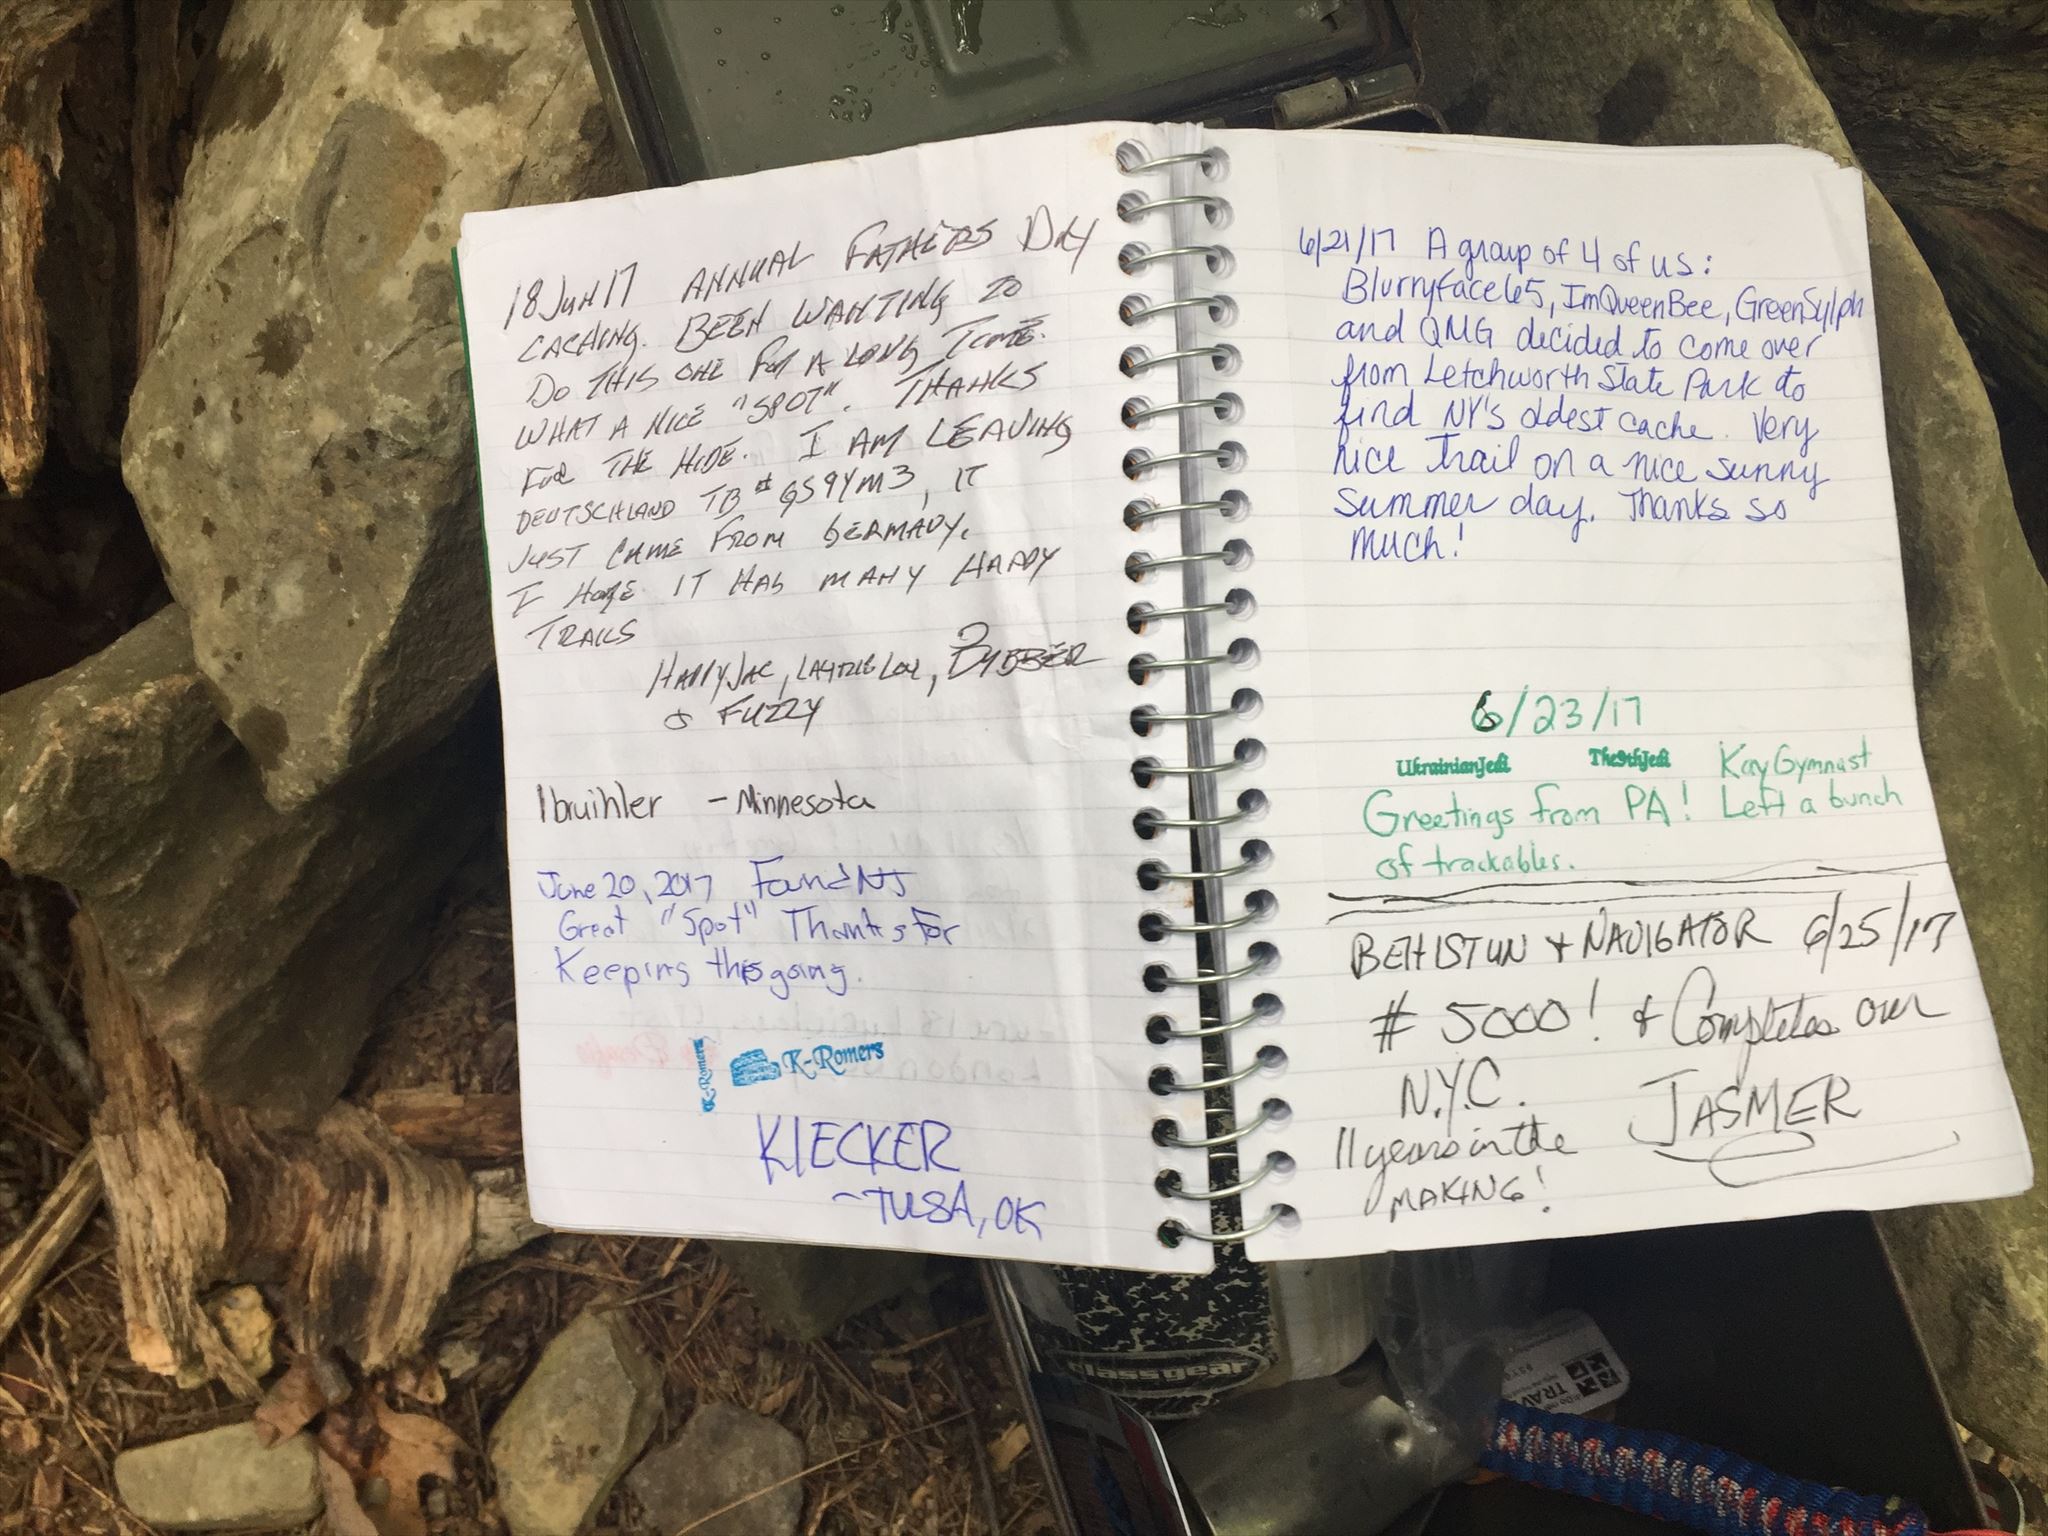 18 Jun 17 ANNUAL FATHERS DAY
CACHING. BEEN WANTING TO
DO THIS ONE FOR A LONG TIME.
WHAT A NICE "SPOT". THANKS
FOR THE HIDE. I AM LEAVING
DEUTSCHLAND TB# GS9YM3, IT
JUST CAME FROM GERMANY.
I HOPE IT HAS MANY HAPPY
TRAILS
HAPPYJAC, LAURIE LOU,
& FUZZY
lbruihler - Minnesota
June 20, 2017 Found NJ
Great "Spot" Thanks For
Keeping this going.
K-Romers
K-Romers
KIECKER
~TULSA, OK
6/21/17 A group of 4 of us:
Blurryface65, ImQueenBee, GreenSylph
and QMG decided to come over
from Letchworth State Park to
find NY's oldest cache. Very
nice trail on a nice sunny
summer day. Thanks so
much!
6/23/17
UkrainianJedi The9thJedi KayGymnast
Greetings from PA! Left a bunch
of trackables.
BEHISTUN & NAVIGATOR 6/25/17
# 5000! & Completes our
N.Y.C. JASMER
11 years in the
MAKING!
classgear
TRAV